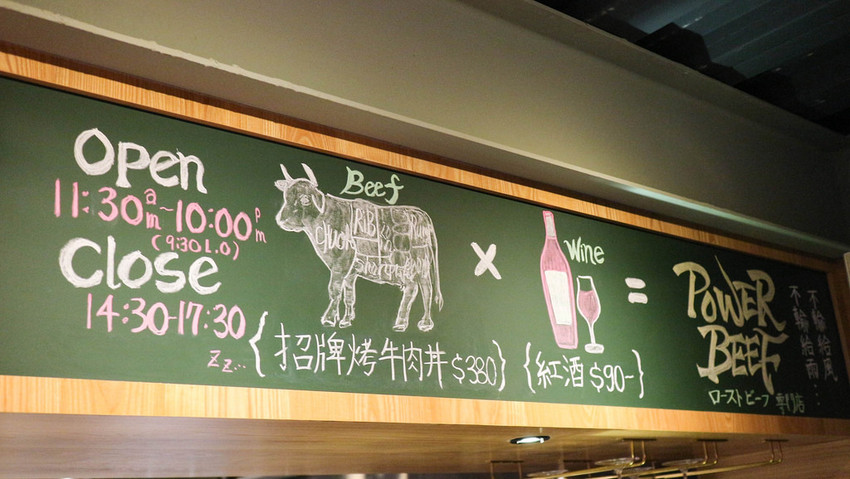 Open
11:30am~10:00pm
(9:30 L.O)
Close
14:30-17:30
Zz...
Beef
RIB
{招牌烤牛肉丼 $380}
×
Wine
{紅酒 $90-}
=
POWER
BEEF
ローストビーフ 専门店
不輸給風
不輸給雨...